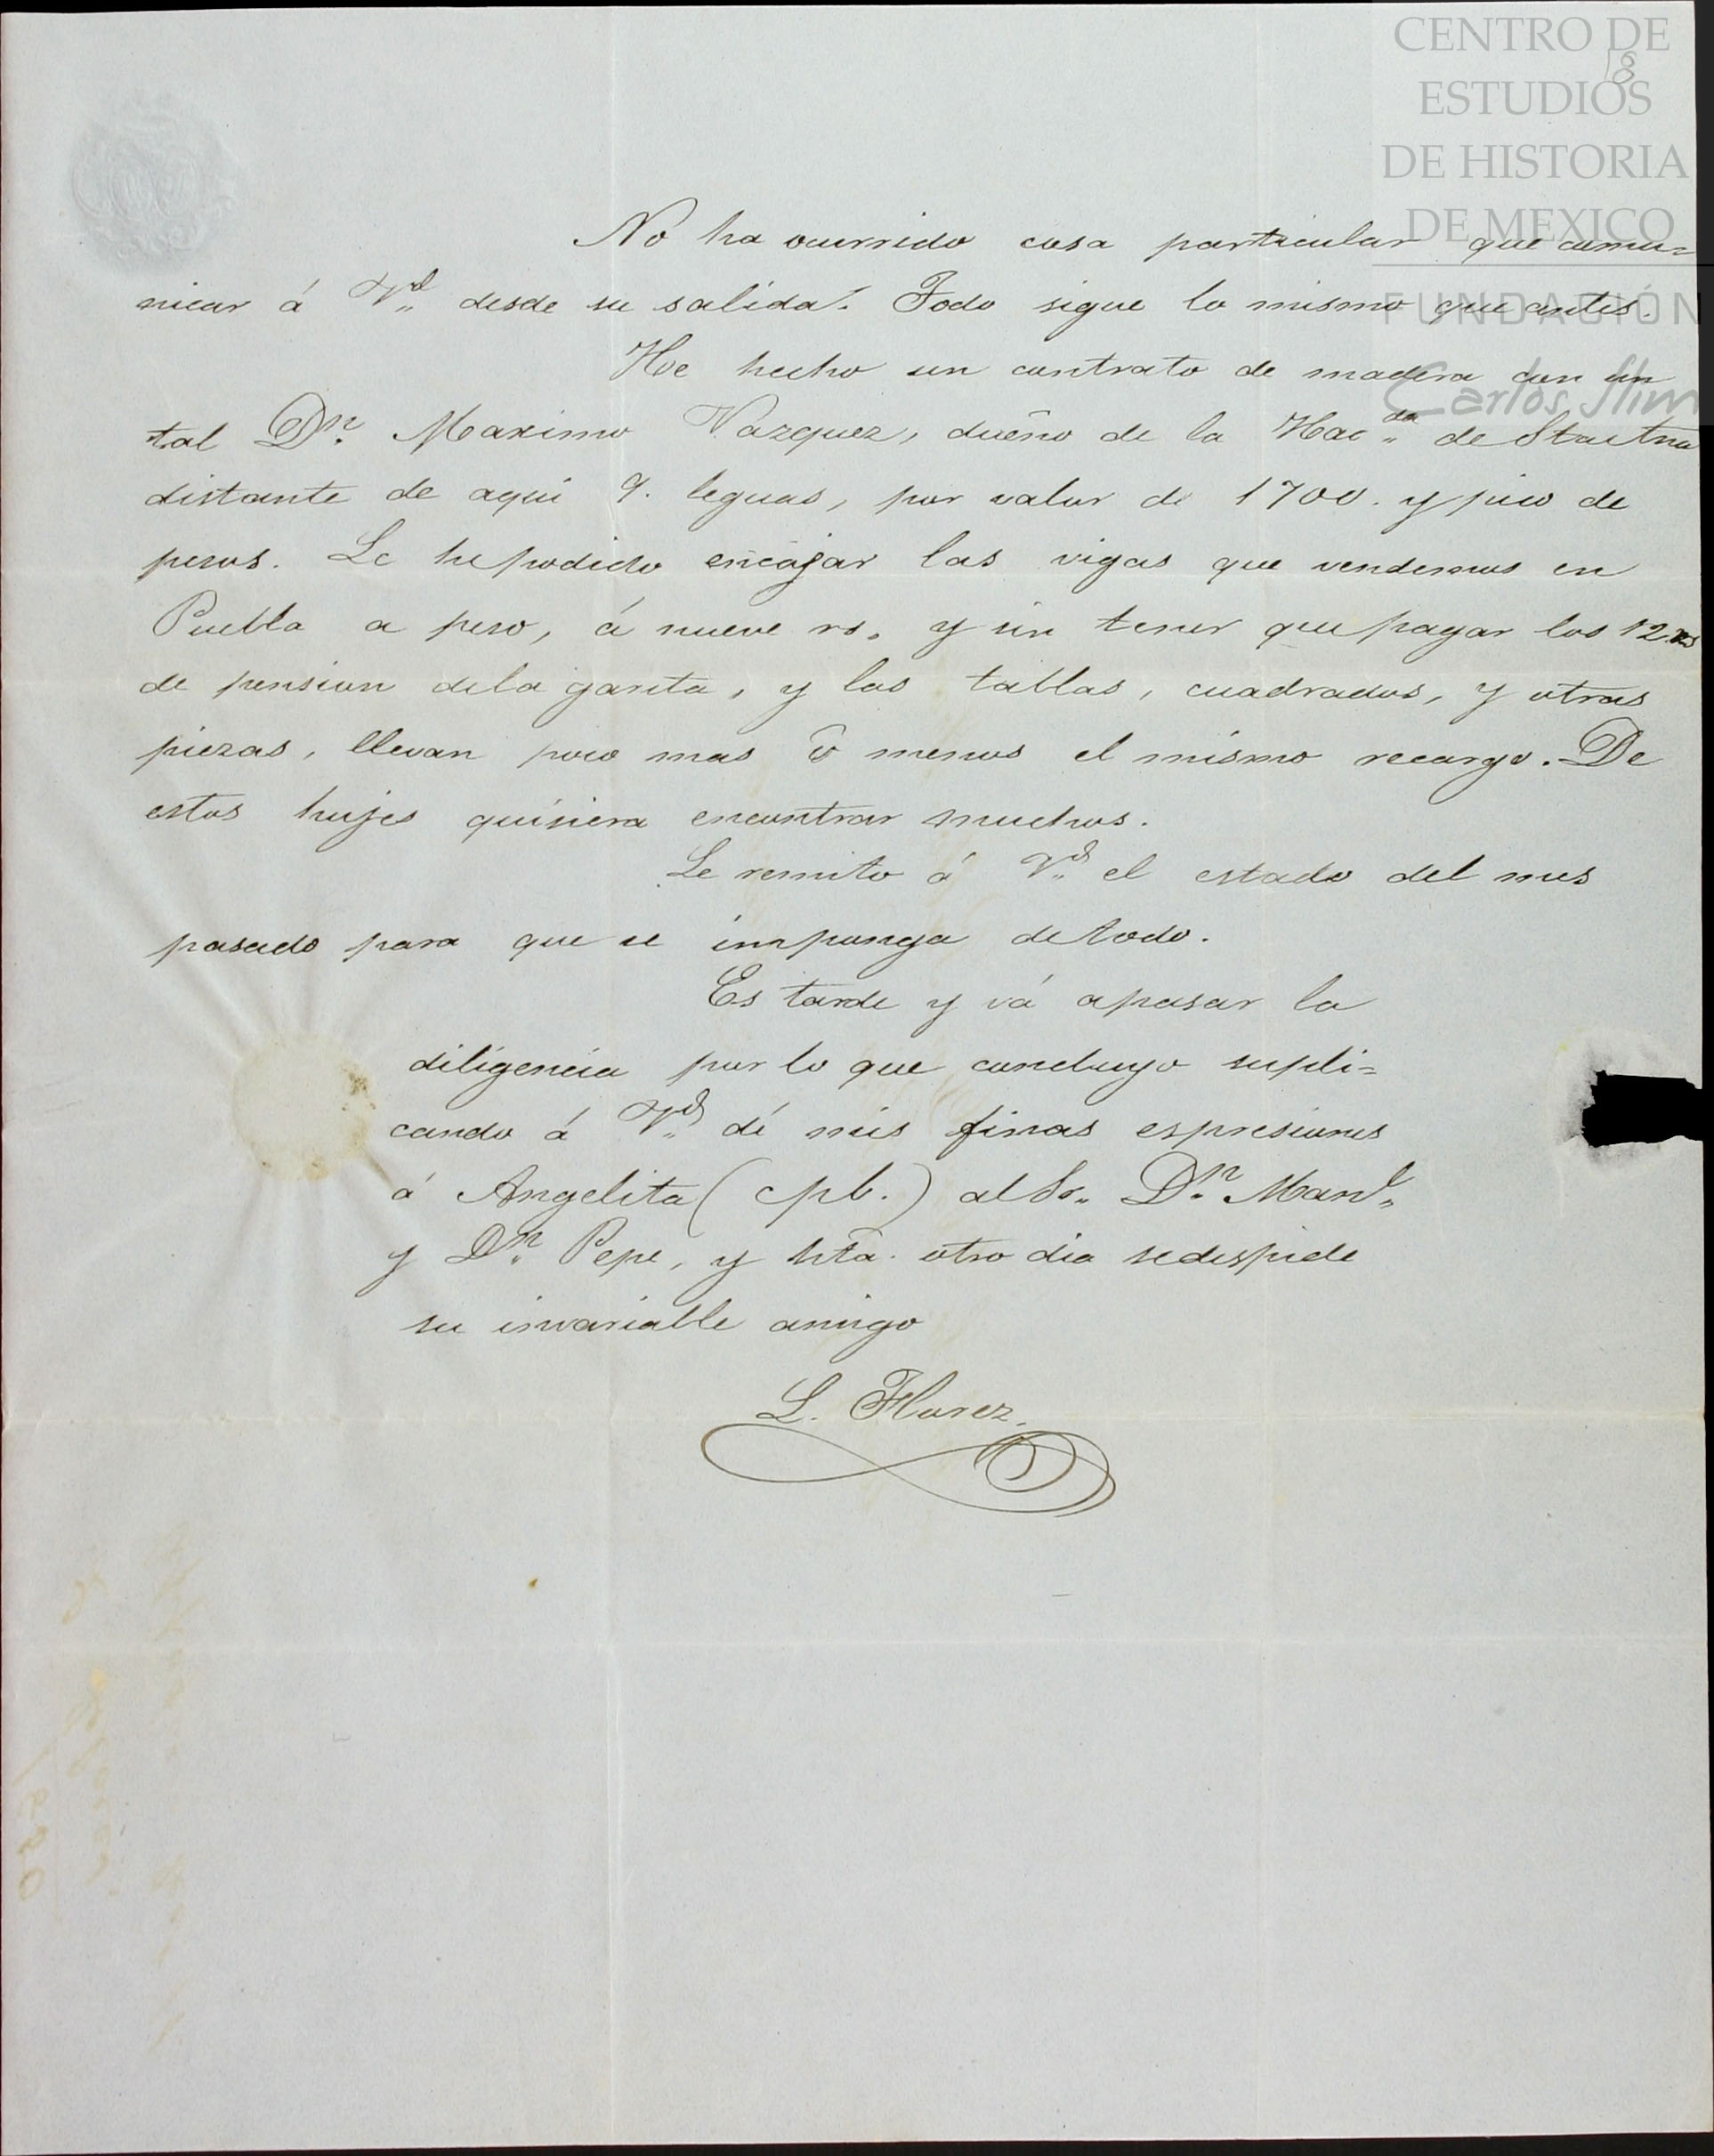 CENTRO DE
ESTUDIOS
DE HISTORIA
DE MEXICO
FUNDACIÓN
Carlos Slim
18
No ha ocurrido cosa particular que comu=
nicar á Vd. desde su salida. Todo sigue lo mismo que antes.
He hecho un contrato de madera con un
tal Dn. Maximo Vazquez, dueño de la Hacda. de
distante de aqui 9. leguas, por valor de 1700. y pico de
pesos. Le he podido encajar las vigas que vendemos en
Puebla a peso, á nueve rs. y sin tener que pagar los 12 rs
de pension dela garita, y las tablas, cuadrados, y otras
piezas, llevan poco mas ó menos el mismo recargo. De
estos hujes quisiera encontrar muchos.
Le remito á Vd. el estado del mes
pasado para que se imponga de todo.
Es tarde y vá apasar la
diligencia por lo que concluyo supli=
cando á Vd. dé mis finas espresiones
á Angelita (cpb.) al Sr. Dn. Manl.
y Dn. Pepe, y hta. otro dia sedespide
su invariable amigo
L. Florez.